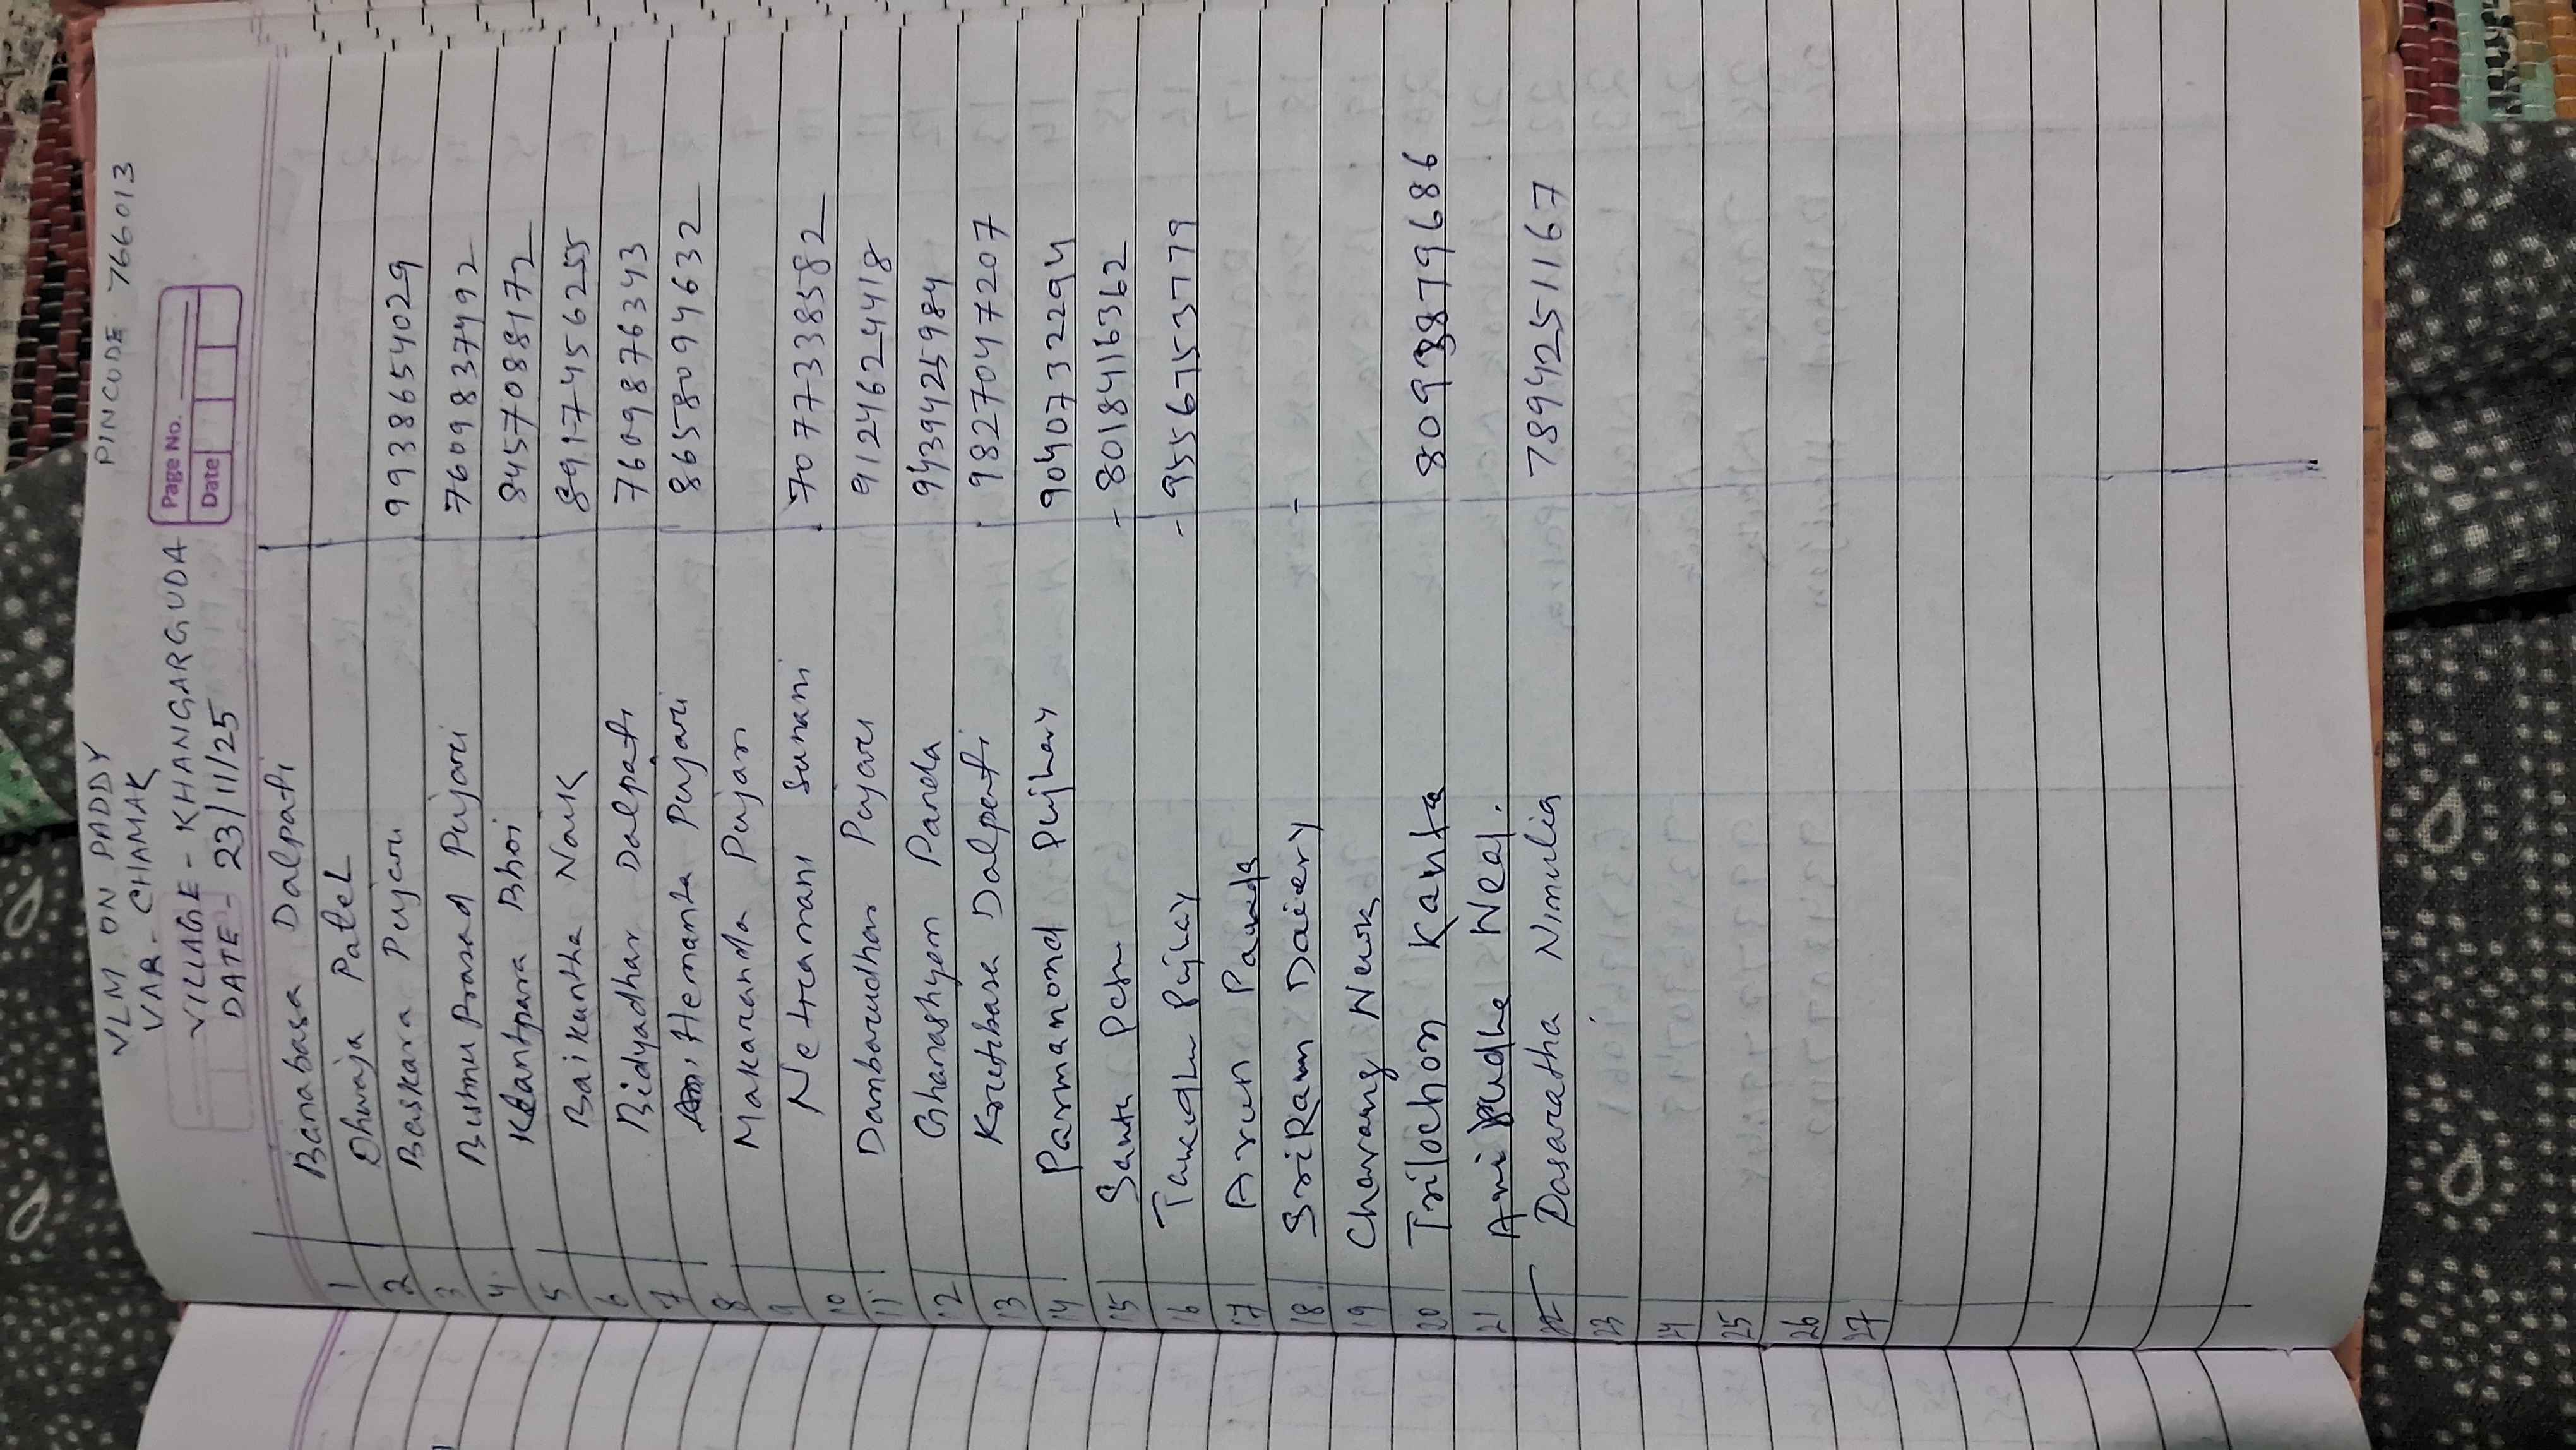 VLM ON PADDY
VAR - CHAMAK PINCODE - 766013
VILLAGE - KHANGARGUDA
DATE - 23/11/25
Page No.
Date
1 Banabasa Dalpati
2 Dhwaja Patel
3 Baskara Pujari 9938654029
4 Bishnu Prasad Pujari 7609837492
5 Kantpara Bhoi 8457088172
6 Baikuntha Naik 8917456255
7 Bidyadhar Dalpati 7609876343
8 Hemanta Pujari 8658094632
9 Makaranda Pujari
10 Netramani Sunani 7077338582
11 Dambarudhar Pujari 9124624418
12 Ghanashyam Panda 9439425984
13 Krutibasa Dalpati 9827047207
14 Parmanond Pujhary 9040732294
15 Santu - 8018416362
16 Pujhay - 9556753779
17 Arun Panda
18 SriRam Daiery -
19 Charang Naik
20 Trilochan Kanta 8093879686
21 Neal.
Dasaratha Nimulia 7894251167
23
24
25
26
27